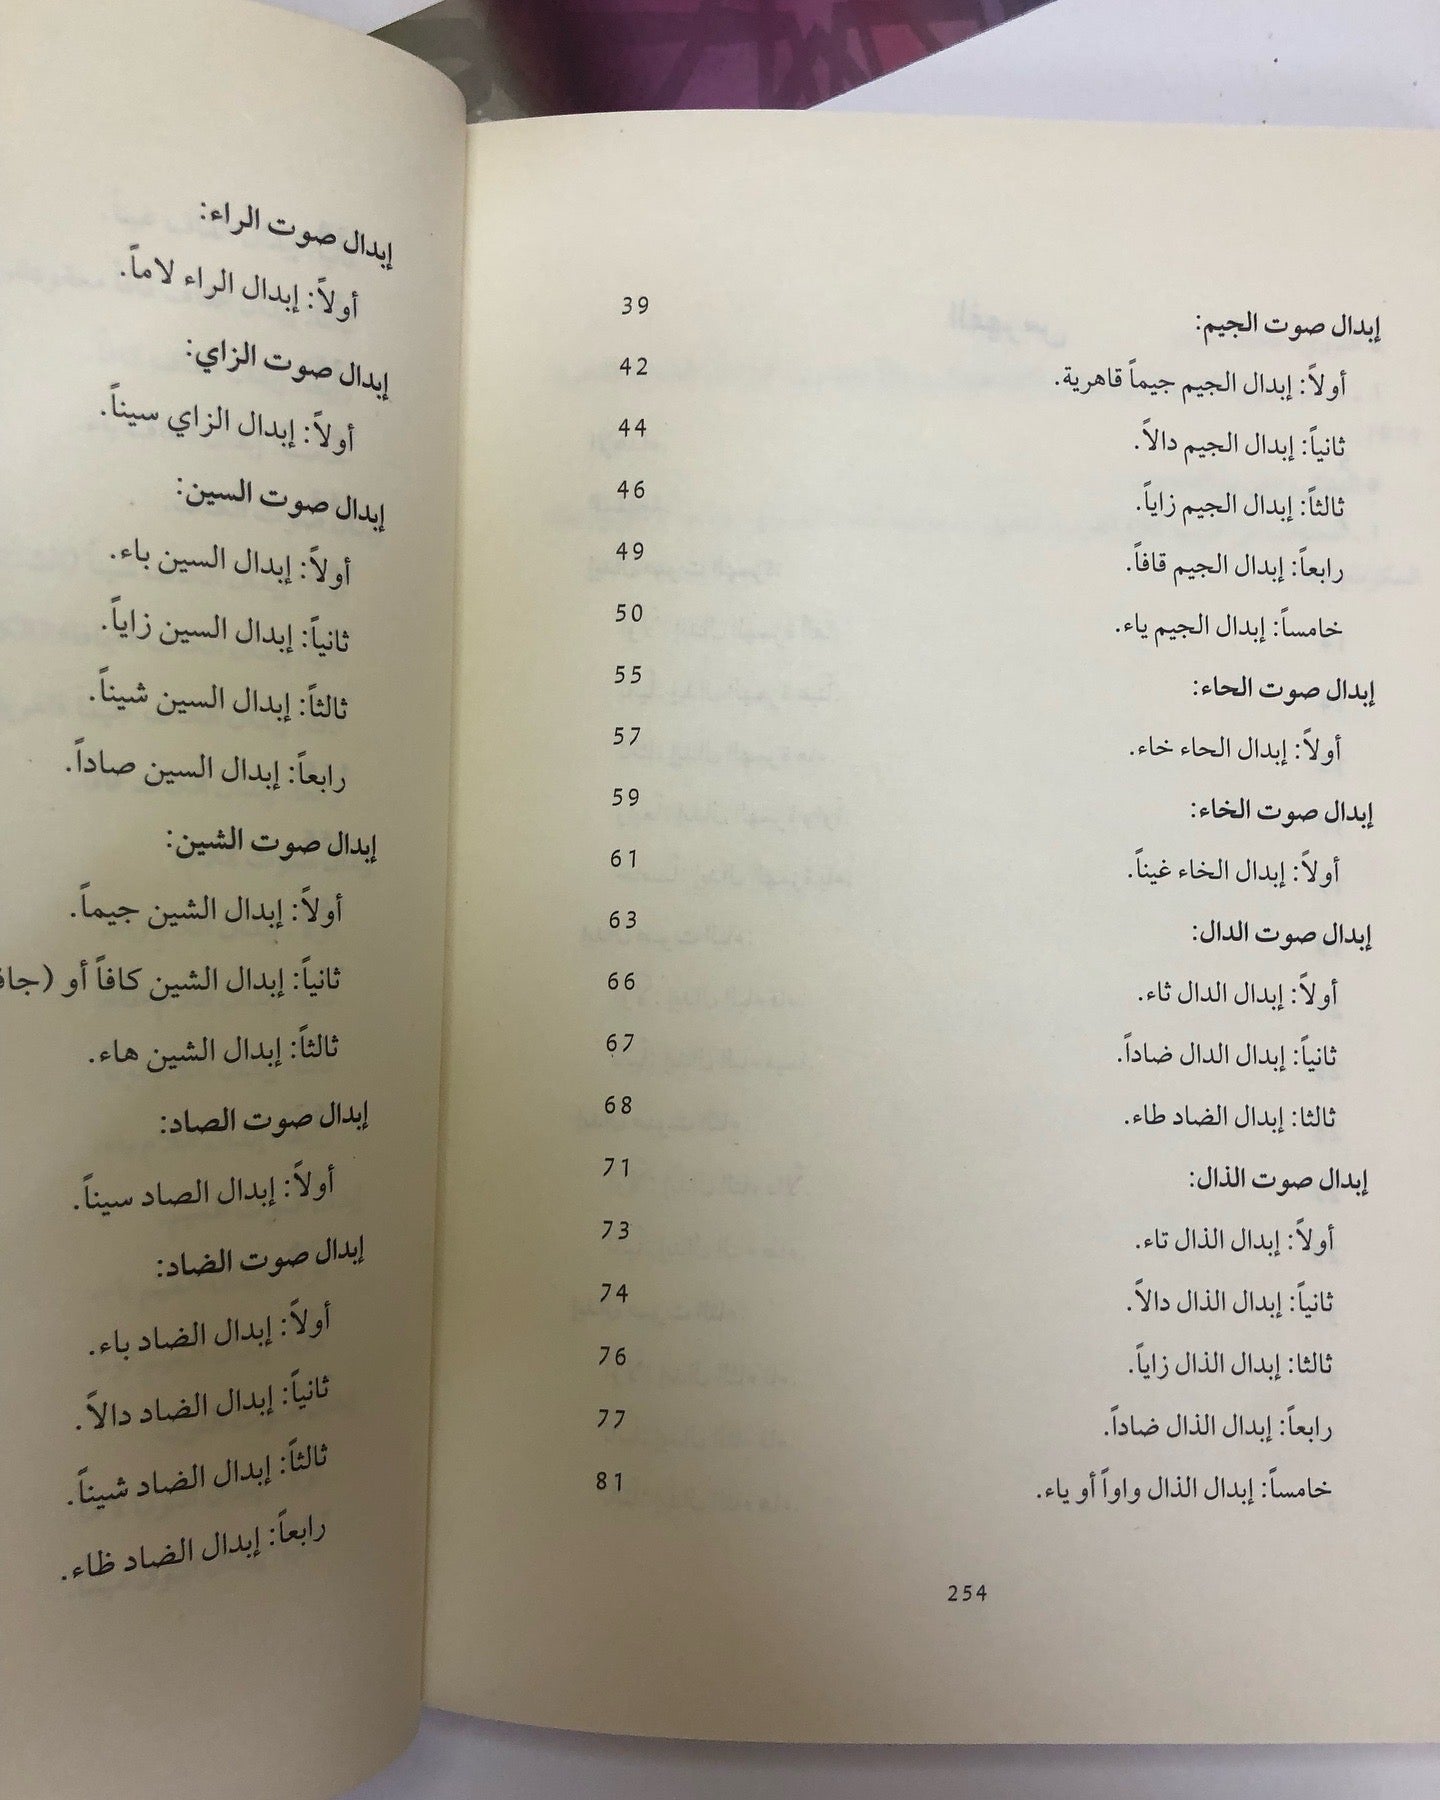 إبدال صوت الجيم: 39
أولاً: إبدال الجيم جيماً قاهرية. 42
ثانياً: إبدال الجيم دالاً. 44
ثالثاً: إبدال الجيم زاياً. 46
رابعاً: إبدال الجيم قافاً. 49
خامساً: إبدال الجيم ياء. 50
إبدال صوت الحاء: 55
أولاً: إبدال الحاء خاء. 57
إبدال صوت الخاء: 59
أولاً: إبدال الخاء غيناً. 61
إبدال صوت الدال: 63
أولاً: إبدال الدال ثاء. 66
ثانياً: إبدال الدال ضاداً. 67
ثالثا: إبدال الضاد طاء. 68
إبدال صوت الذال: 71
أولاً: إبدال الذال تاء. 73
ثانياً: إبدال الذال دالاً. 74
ثالثا: إبدال الذال زاياً. 76
رابعاً: إبدال الذال ضاداً. 77
خامساً: إبدال الذال واواً أو ياء. 81
254
إبدال صوت الراء:
أولاً: إبدال الراء لاماً.
إبدال صوت الزاي:
أولاً: إبدال الزاي سيناً.
إبدال صوت السين:
أولاً: إبدال السين باء.
ثانياً: إبدال السين زاياً.
ثالثاً: إبدال السين شيناً.
رابعاً: إبدال السين صاداً.
إبدال صوت الشين:
أولاً: إبدال الشين جيماً.
ثانياً: إبدال الشين كافاً أو
ثالثاً: إبدال الشين هاء.
إبدال صوت الصاد:
أولاً: إبدال الصاد سيناً.
إبدال صوت الضاد:
أولاً: إبدال الضاد باء.
ثانياً: إبدال الضاد دالاً.
ثالثاً: إبدال الضاد شيناً.
رابعاً: إبدال الضاد ظاء.